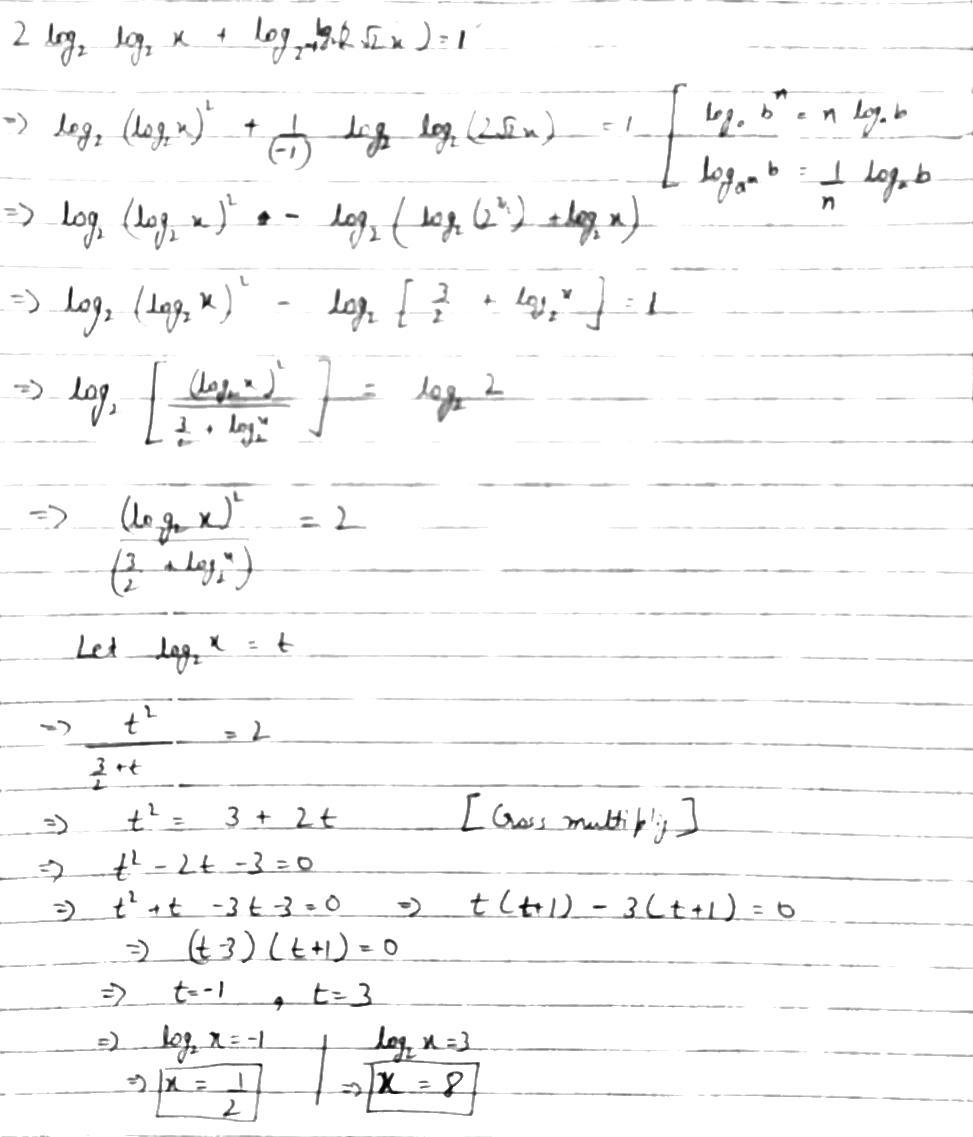 2 log₂ log₂ x + log₂₋₁ log₂(2√2 x) = 1
=> log₂ (log₂ x)² + 1/(-1) log₂ log₂ (2√2 x) = 1 [ logₐ bⁿ = n logₐ b
logₐⁿ b = 1/n logₐ b
=> log₂ (log₂ x)² - log₂ ( log₂ (2^3/2) + log₂ x)
=> log₂ (log₂ x)² - log₂ [ 3/2 + log₂ x ] = 1
=> log₂ [ (log₂ x)² / 3/2 + log₂ x ] = log₂ 2
=> (log₂ x)² / (3/2 + log₂ x) = 2
Let log₂ x = t
=> t² / 3/2 + t = 2
=> t² = 3 + 2t [Cross multiply]
=> t² - 2t - 3 = 0
=> t² + t - 3t - 3 = 0 => t(t+1) - 3(t+1) = 0
=> (t-3)(t+1) = 0
=> t = -1 , t = 3
=> log₂ x = -1 | log₂ x = 3
=> x = 1/2 | => x = 8